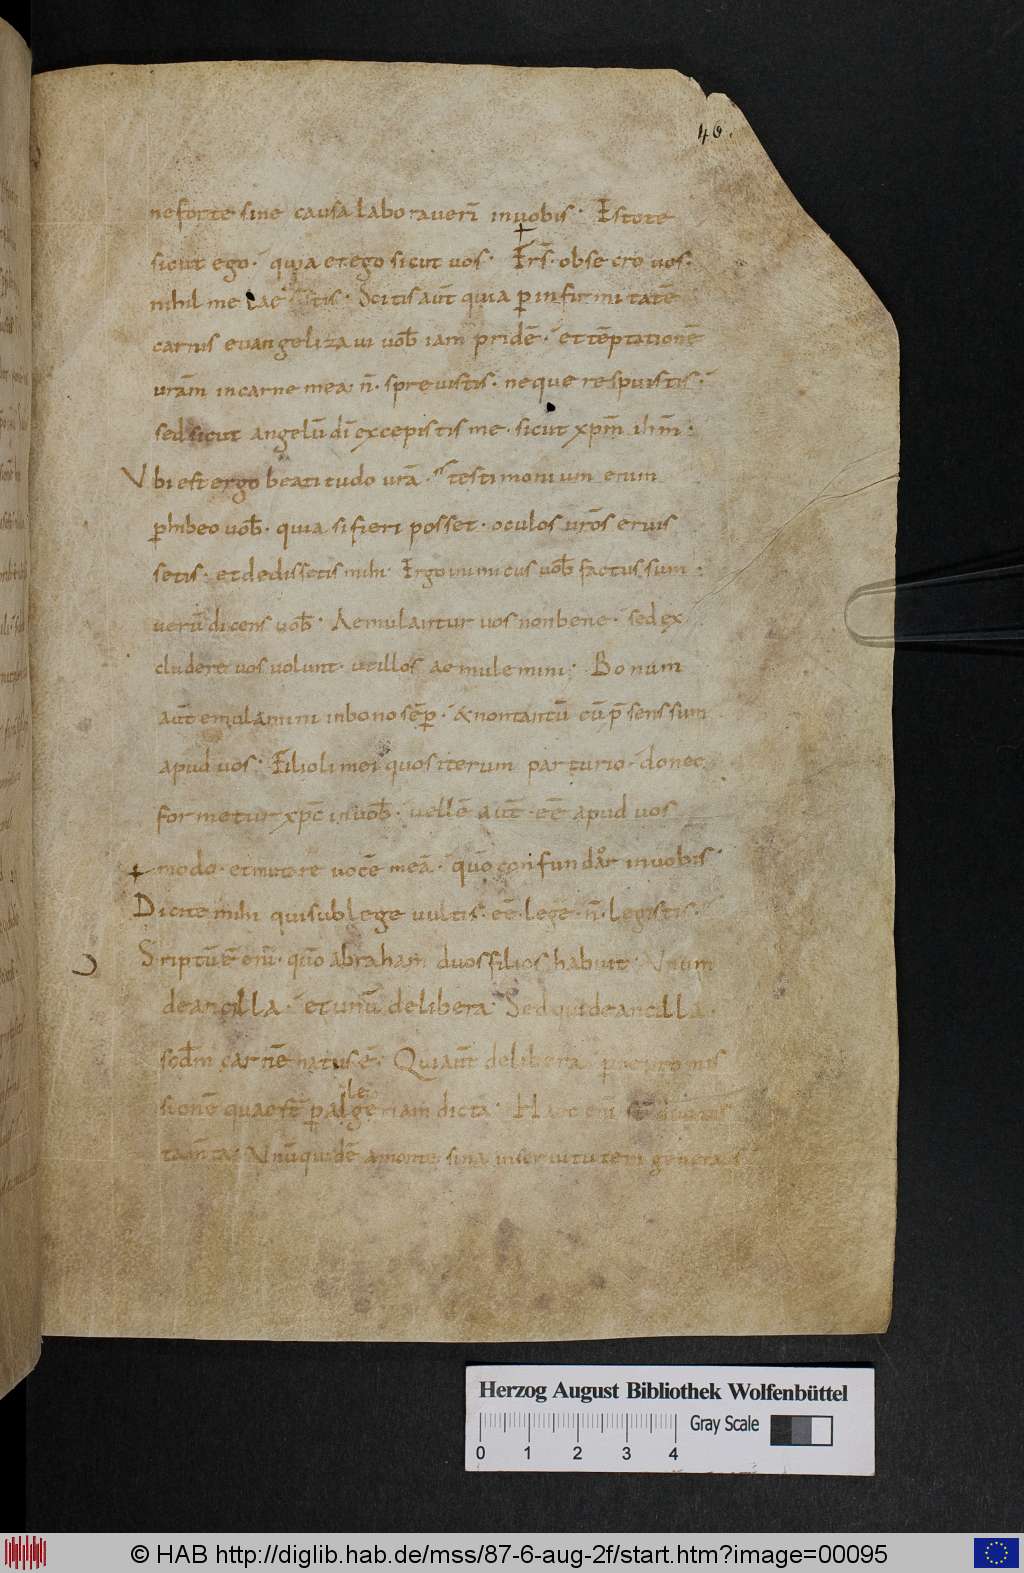 46.
ne forte sine causa laborauerī in uobis· Estote
sicut ego· quia et ego sicut uos· Frs̄· obsecro uos·
nihil me laesistis· Scitis aut̄ quia ꝑ infirmitatē
carnis euangelizaui uob̄ iam pridē· et tēptationē
urām in carne mea n̄· spreuistis· neque respuistis·
sed sicut angelū dī excepistis me· sicut xpm̄ ihm̄·
Vbi est ergo beatitudo urā· testimonium enim
ꝑhibeo uob̄· quia si fieri posset· oculos urōs eruis
setis· et dedissetis mihi· Ergo inimicus uob̄ factus sum·
uerū dicens uob̄· Aemulantur uos non bene· sed ex
cludere uos uolunt· ut illos aemulemini· Bonum
aut̄ emulamini in bono sēꝑ· & non tantū cū p̄sens sum
apud uos· Filioli mei quos iterum parturio· donec
formetur xpc̄ in uob̄· uellē aut̄· eē apud uos
modo· et mutare uocē meā· quō confundar in uobis
Dicite mihi qui sub lege uultis· eē· legē· n̄· legistis·
Scriptū ē enī· quō abraham duos filios habuit· Vnum
de ancilla· et unū de libera· Sed qui de ancilla·
scd̄m carnē natus ē· Qui aut̄ de libera· p̄ repromis
sionē quae st̄ ꝑ allegoriam dicta· Haec enī st̄ duo tes
tamta· Vnū quidē a monte sina in seruitutem generans
Herzog August Bibliothek Wolfenbüttel
Gray Scale
0 1 2 3 4
© HAB http://diglib.hab.de/mss/87-6-aug-2f/start.htm?image=00095